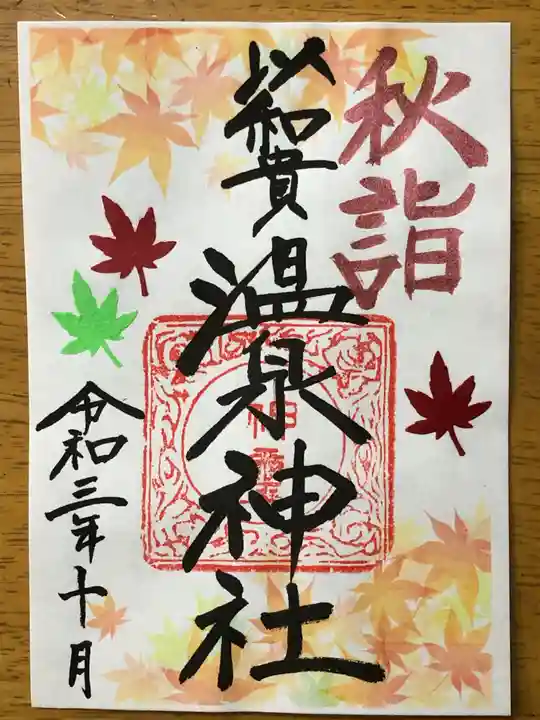 秋詣
以和貴
温泉神社
令和三年十月